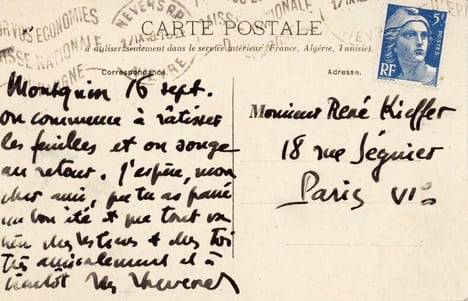 VOS ECONOMIES
NATIONALE
NEVERS R.P.
CARTE POSTALE
à utiliser seulement dans le service intérieur (France, Algérie, Tunisie).
Correspondance.
Adresse.
5F
POSTES
RF
16 sept.
on commence à râtisser
les feuilles et on songe
au retour. J'espère, mon
cher ami, que tu as passé
un bon été et que tout va
bien chez toi
très amicalement et à
bientôt
Monsieur René Kieffer
18 rue Séguier
Paris VIe